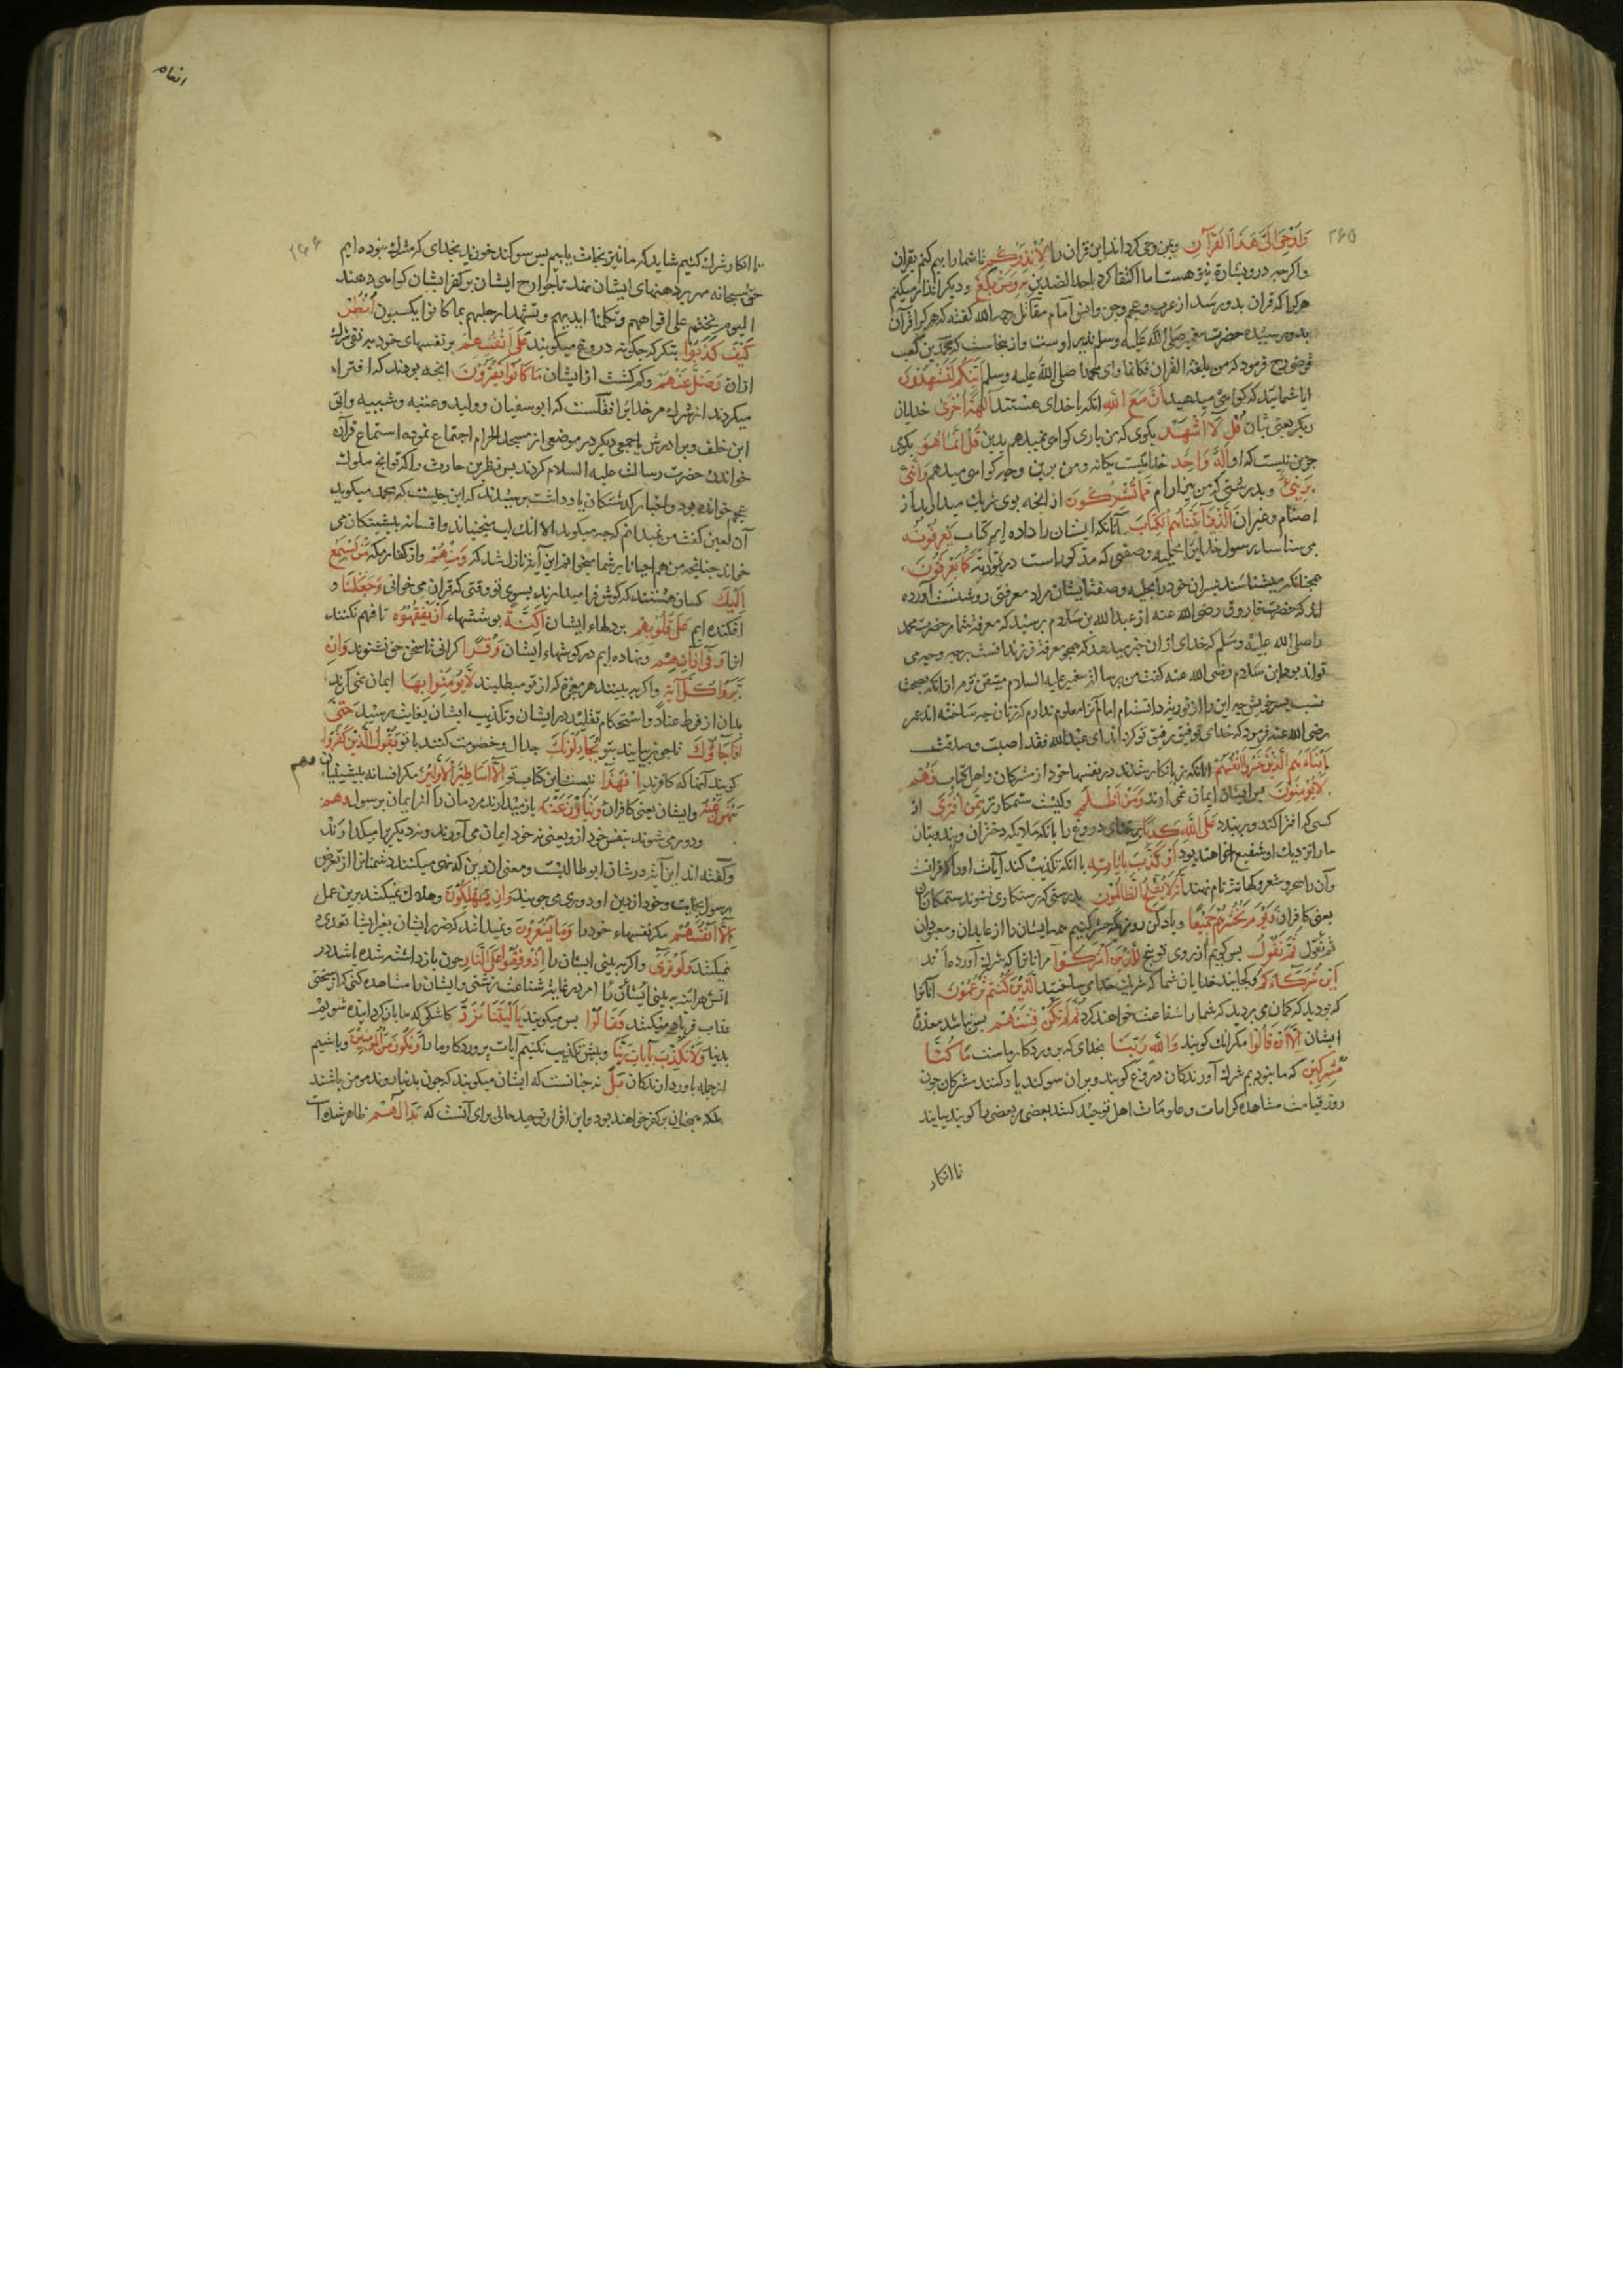 ۲۶۵
وَاُوحِیَ اِلَیَّ هٰذَا الْقُرْآنُ وبمن وحی کرده اند این قرآن را لِاُنْذِرَکُمْ تا شما را بیم کنم بقرآن
واکرچه درو بشارة نیز هست اما اکتفا کرد باحد الضدین بِهِ وَمَنْ بَلَغَ ودیکر انذار میکنم
هرکرا که قرآن بدو رسد از عرب وعجم وجن وانس امام مقاتل رحمه الله کفته که هرکرا قرآن
بدو رسیده حضرت پیغمبر صلی الله علیه وسلم نذیر اوست واز ینجاست که محمد بن کعب
قرضی رح فرمود که من بلغه القرآن فکانما رای محمدا صلی الله علیه وسلم اَئِنَّکُمْ لَتَشْهَدُونَ
ایا شمایید که کواهی میدهید اَنَّ مَعَ اللهِ انکه با خدای هستند آلِهَةً اُخْرٰی خدایان
دیکر یعنی بتان قُلْ لَا اَشْهَدُ بکوی که من باری کواهی نمیدهم بدین قُلْ اِنَّمَا هُوَ بکوی
جزین نیست که او اِلٰهٌ وَاحِدٌ خدائیست یکانه ومن برین وجه کواهی میدهم وَاِنَّنِی
بَرِیءٌ وبدرستی که من بیزارم مِمَّا تُشْرِکُونَ از انچه بوی شریک میدارید از
اصنام وغیر ان اَلَّذِینَ آتَیْنَاهُمُ الْکِتَابَ آنانکه ایشان را داده ایم کتاب یَعْرِفُونَهُ
می شناسند رسول خدایرا بحلیه وصفتی که مذکور است در توریة کَمَا یَعْرِفُونَ
همچنانکه میشناسند پسران خود را بحلیه وصفت ایشان مراد معرفتی روشنست آورده
اند که حضرت فاروق رضی الله عنه از عبد الله بن سلام پرسید که معرفة شما مر حضرت محمد
را صلی الله علیه وسلم که خدای ازان خبر میدهد که همچو معرفة فرزندانست برچه وجه می
تواند بود ابن سلام رضی الله عنه کفت من برسالت پیغمبر علیه السلام متیقن ترم ازانکه بصحت
نسب پسر خویش چه این را از توریة دانسته ام اما آنرا معلوم ندارم که زنان چه ساخته اند عمر
رضی الله عنه فرمود که خدای توفیق رفیق تو کرده اند ای عبد الله فقد اصبت وصدقت
اَبْنَاءَهُمُ الَّذِینَ خَسِرُوا اَنْفُسَهُمْ انانکه زیانکار شدند در نفسهاء خود از مشرکان واهل کتاب فَهُمْ
لَا یُؤْمِنُونَ پس ایشان ایمان نمی آرند وَمَنْ اَظْلَمُ وکیست ستمکارتر مِمَّنِ افْتَرٰی از
کسی که افترا کند وبربندد عَلَی اللهِ کَذِبًا بر خدای دروغ را بانکه ملایکه دختران ویند وبتان
ما را نزدیک او شفیع خواهند بود اَوْ کَذَّبَ بِآیَاتِهِ یا انکه تکذیب کند آیات او را که قرانست
وآن را سحر وشعر وکهانت نام نهند اِنَّهُ لَا یُفْلِحُ الظَّالِمُونَ بدرستی که رستکاری نشوند ستمکاران
یعنی کافران وَیَوْمَ نَحْشُرُهُمْ جَمِیعًا ویاد کن روزی که حشر کنیم همه ایشان را از عابدان ومعبودان
ثم نقول ثُمَّ نَقُولُ پس کویم از روی توبیخ لِلَّذِینَ اَشْرَکُوا مرانانرا که شرک آورده اند
اَیْنَ شُرَکَاؤُکُمُ وکجایند خدایان شما که شریک خدای ساختید اَلَّذِینَ کُنْتُمْ تَزْعُمُونَ آنانرا
که بودید که کمان می بردید که شما را شفاعت خواهند کرد ثُمَّ لَمْ تَکُنْ فِتْنَتُهُمْ پس نباشد معذرة
ایشان اِلَّا اَنْ قَالُوا مکر انک کویند وَاللهِ رَبِّنَا بخدای که پروردکار ماست مَا کُنَّا
مُشْرِکِینَ که ما نبودیم شرک آورندکان دروغ کویند وبران سوکند یاد کنند مشرکان چون
روز قیامت مشاهده کرامات وعلو مقامات اهل توحید کنند بعضی مر بعضی را کویند بیایند
تا انکار
انعام
۲۶۶
تا انکار شرک کنیم شاید که ما نیز نجات یابیم پس سوکند خورند بخدای که مشرک نبوده ایم
حق سبحانه مهر بر دهنهای ایشان نهد تا جوارح ایشان بر کفر ایشان کواهی دهند
الیوم نختم علی افواههم وتکلمنا ایدیهم وتشهد ارجلهم بما کانوا یکسبون اُنْظُرْ
کَیْفَ کَذَبُوا بنکر که چکونه دروغ میکویند عَلٰی اَنْفُسِهِمْ بر نفسهای خود به نفی شرک
ازان وَضَلَّ عَنْهُمْ وکم کشت از ایشان مَا کَانُوا یَفْتَرُونَ انچه بودند که افتراء
میکردند از شرک مر خدایرا نقلست که ابو سفیان وولید وعتبه وشیبه وابی
ابن خلف وبرادرش با جمعی دیکر در موضعی از مسجد الحرام اجتماع نموده استماع قرآن
خواندن حضرت رسالت علیه السلام کردند پس نضر بن حارث را که تواریخ ملوک
عجم خوانده بود واخبار کذشتکان یاد داشت پرسیدند که این چیست که محمد میکوید
آن لعین کفت من نمیدانم که چه میکوید الا انک لب میجنباند وافسانه پیشینکان می
خواند چنانچه من هم احیانا بر شما میخوانم این آیة نازل شد که وَمِنْهُمْ واز کفار مکه مَنْ یَسْتَمِعُ
اِلَیْکَ کسان هستند که کوش فرا میدارند بسوی تو وقتی که قران می خوانی وَجَعَلْنَا و
افکنده ایم عَلٰی قُلُوبِهِمْ بر دلهاء ایشان اَکِنَّةً پوششهاء اَنْ یَفْقَهُوهُ تا فهم نکنند
انرا وَفِی آذَانِهِمْ ونهاده ایم در کوشهاء ایشان وَقْرًا کرانی تا سخن حق نشنوند وَاِنْ
یَرَوْا کُلَّ آیَةٍ واکر به بینند هر معجزه که از تو میطلبند لَا یُؤْمِنُوا بِهَا ایمان نمی آرند
بدان از فرط عناد واستحکام تقلید در ایشان وتکذیب ایشان بغایت رسید حَتّٰی
اِذَا جَاؤُکَ تا چون بیایند بتو یُجَادِلُونَکَ جدال وخصومت کنند با تو یَقُولُ الَّذِینَ کَفَرُوا
کویند آنها که کافرند اِنْ هٰذَا نیست این کتاب تو اِلَّا اَسَاطِیرُ الْاَوَّلِینَ مکر افسانه پیشینیان وَهُمْ
یَنْهَوْنَ عَنْهُ وایشان یعنی کافران وَیَنْاَوْنَ عَنْهُ باز میدارند مردمان را از ایمان برسول
ودور می شوند بنفس خود ازو یعنی نه خود ایمان می آورند ونه دیکریرا میکذارند
وکفته اند این آیة در شان ابو طالبست ومعنی ان بدین که نهی میکند دشمنانرا از تعرض
رسول بحمایت وخود از دین او دوری می جویند وَاِنْ یُهْلِکُونَ وهلاک نمیکنند برین عمل
اِلَّا اَنْفُسَهُمْ مکر نفسهاء خود را وَمَا یَشْعُرُونَ ونمیدانند که ضرر ایشان بغیر ایشان تعدی
نمیکند وَلَوْ تَرٰی واکر به بینی ایشان را اِذْ وُقِفُوا عَلَی النَّارِ چون بازداشته شده باشند در
عذاب فریاد میکنند فَقَالُوا پس میکویند یَا لَیْتَنَا نُرَدُّ کاشکی که ما باز کردانیده شویم
بدنیا وَلَا نُکَذِّبَ بِآیَاتِ رَبِّنَا وبیش تکذیب نکنیم آیات پروردکار ما را وَنَکُونَ مِنَ الْمُؤْمِنِینَ وباشیم
از جمله باوردارندکان بَلْ نه چنانست که ایشان میکویند که چون بدنیا روند مومن باشند
بلکه همچنان بر کفر خواهند بود واین اقرار توحید حالی برای آنست که بَدَا لَهُمْ ظاهر شده است